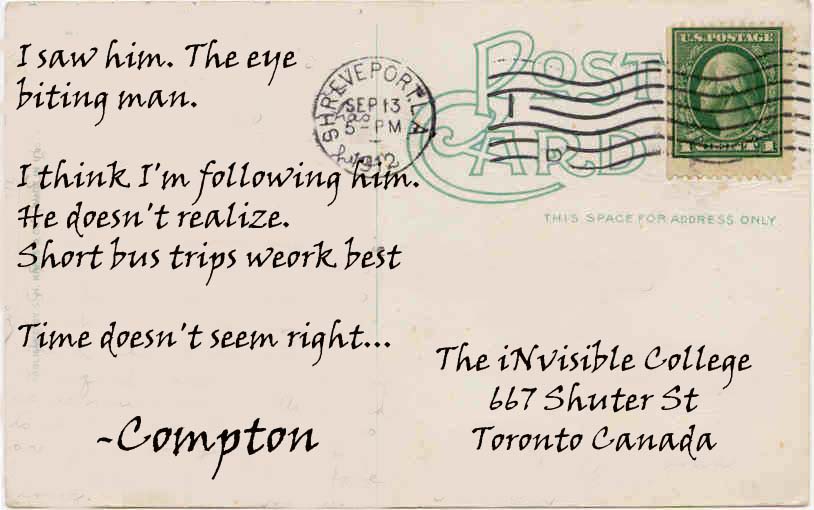 I saw him. The eye
biting man.
I think I'm following him.
He doesn't realize.
Short bus trips weork best
Time doesn't seem right...
~Compton
SHREVEPORT, LA
SEP 13
5-PM
1912
POST
CARD
U.S. POSTAGE
THIS SPACE FOR ADDRESS ONLY
The iNvisible College
667 Shuter St
Toronto Canada